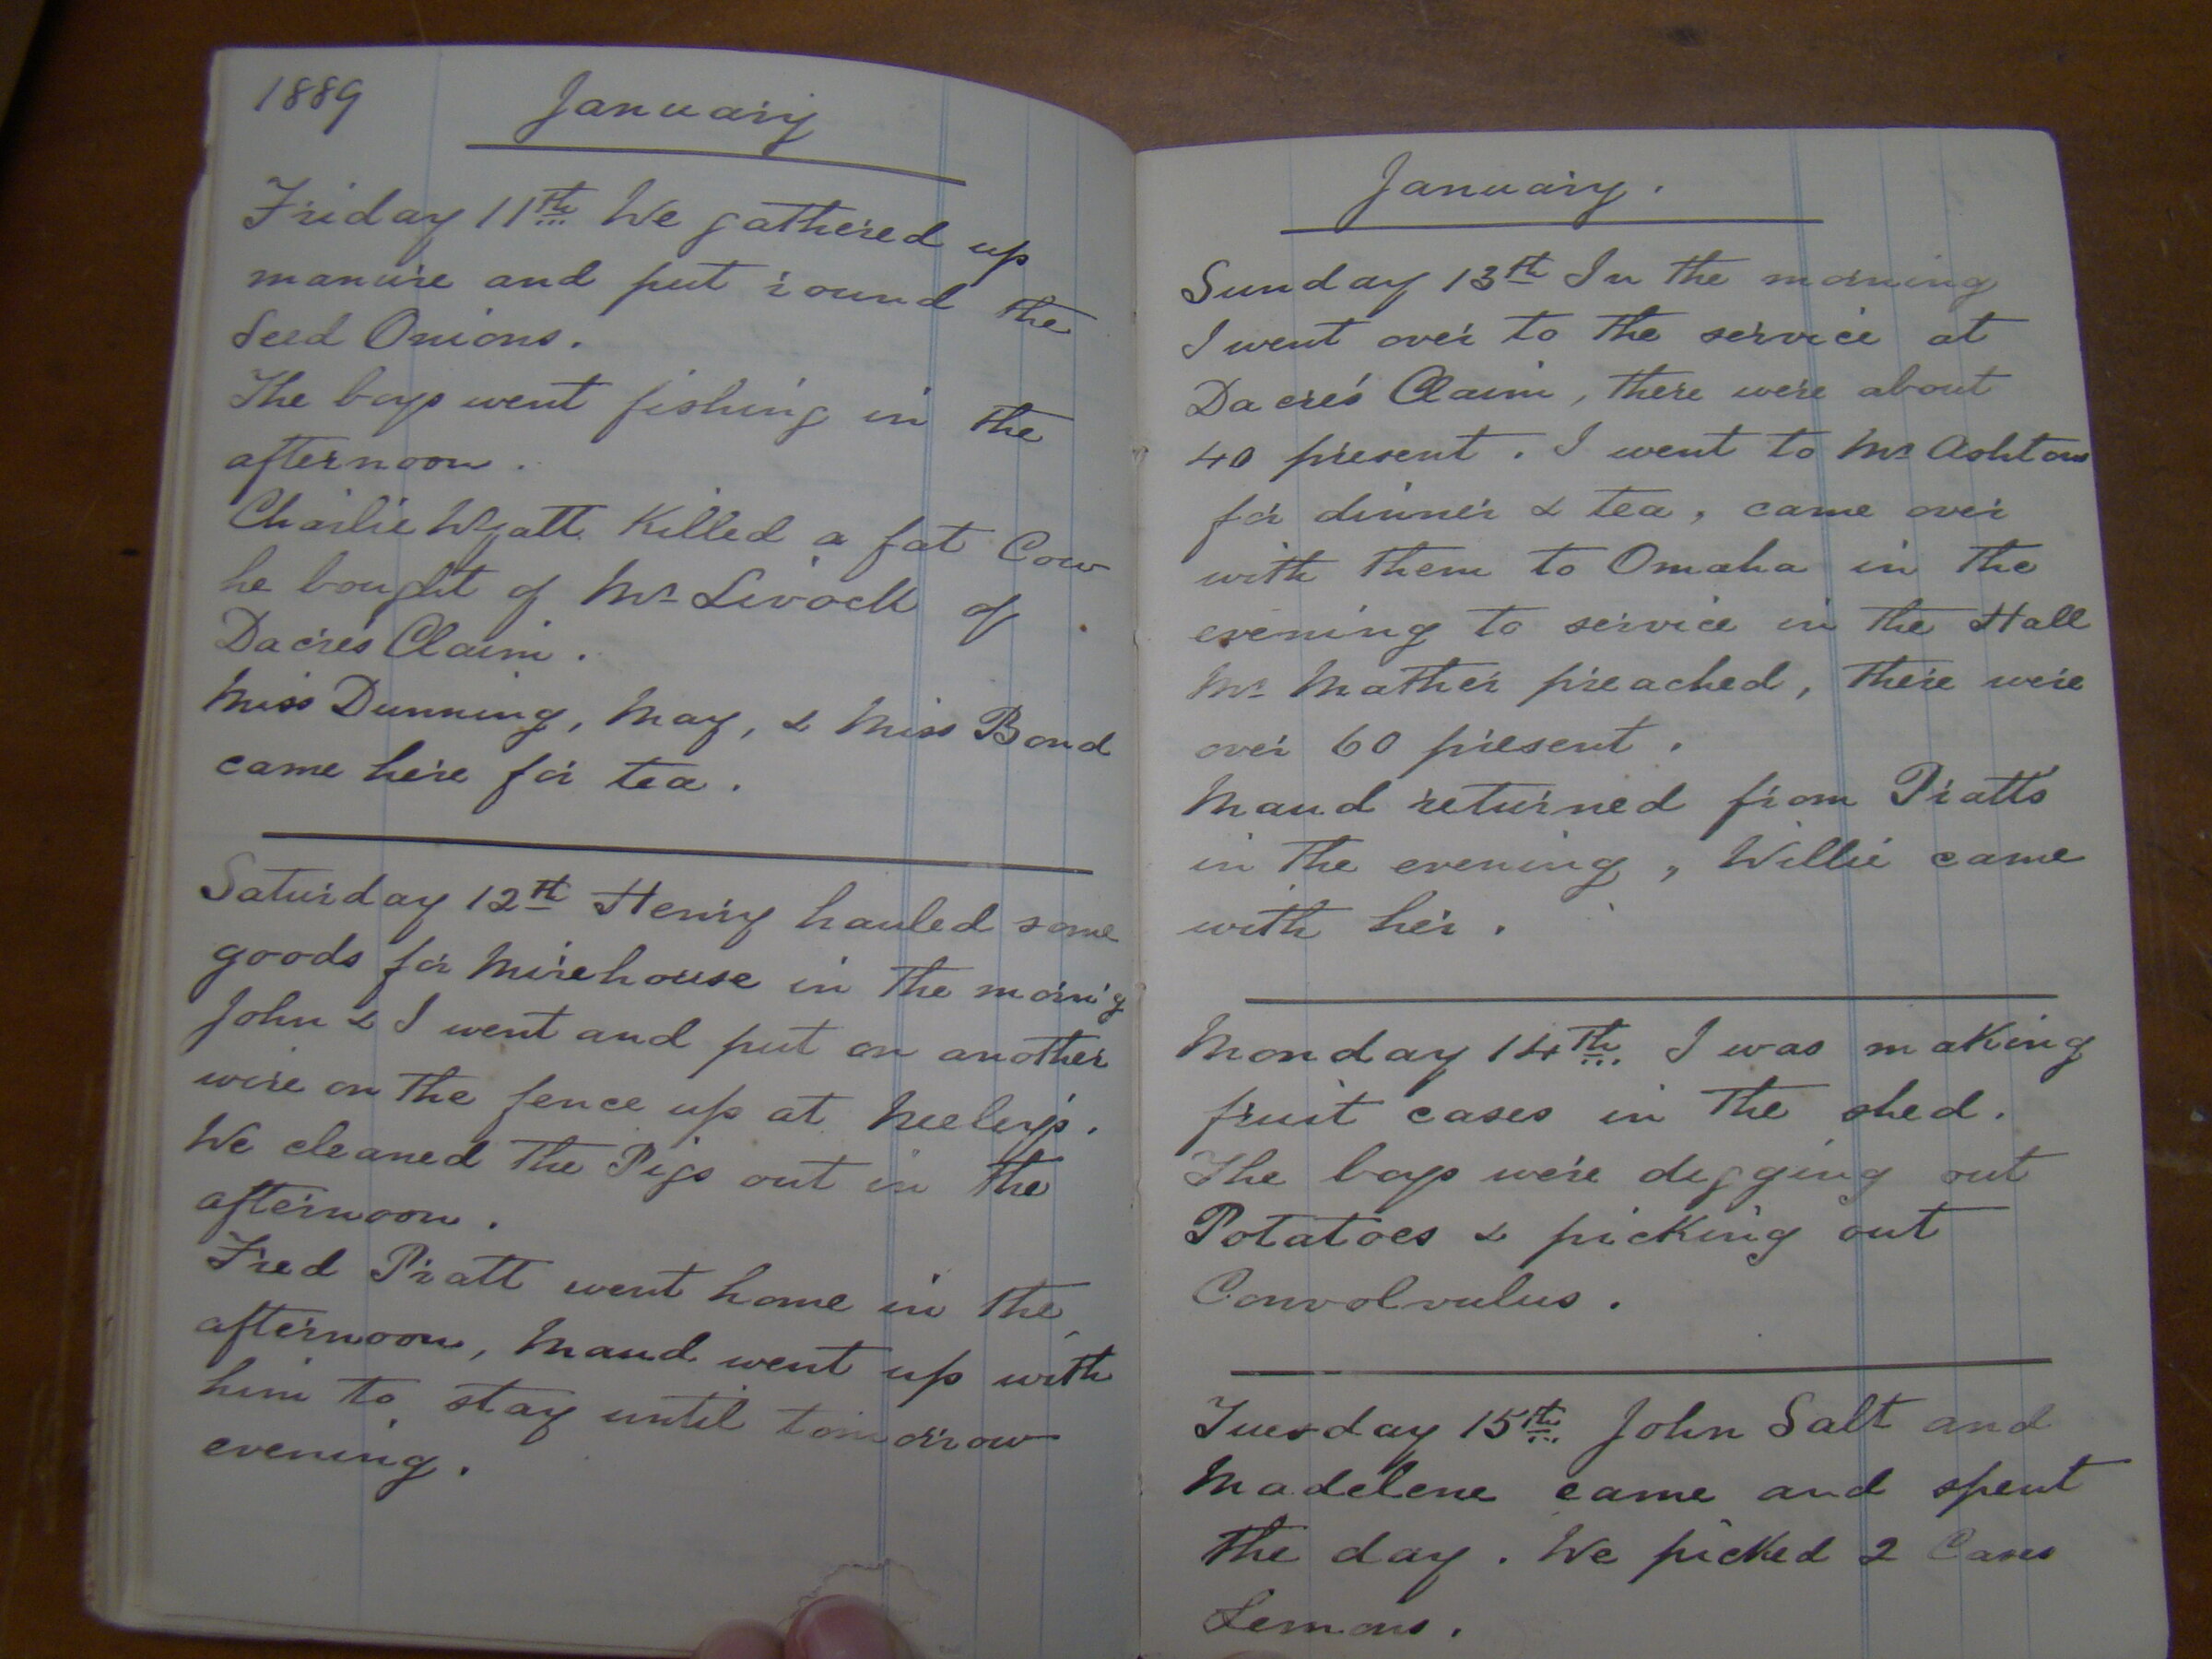 1889 January
Friday 11th We gathered up
manure and put round the
Seed Onions.
The boys went fishing in the
afternoon.
Charlie Wyatt Killed a fat Cow
he bought of Mr Livock of
Dacres Claim.
Miss Dunning, May, & Miss Bond
came here for tea.
Saturday 12th Henry hauled some
goods for Mirehouse in the morn'g
John & I went and put on another
wire on the fence up at Neeley's.
We cleaned the Pigs out in the
afternoon.
Fred Pratt went home in the
afternoon, Maud went up with
him to stay until tomorrow
evening.
January.
Sunday 13th In the morning
I went over to the service at
Dacres Claim, there were about
40 present. I went to Mr Ashtons
for dinner & tea, came over
with them to Omaha in the
evening to service in the Hall
Mr Mather preached, there were
over 60 present.
Maud returned from Pratts
in the evening, Willie came
with her.
Monday 14th I was making
fruit cases in the shed.
The boys were digging out
Potatoes & picking out
Convolvulus.
Tuesday 15th John Salt and
Madelene came and spent
the day. We picked 2 Cases
Lemons.